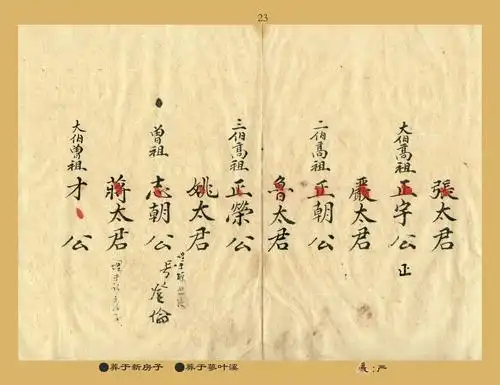 23
張太君
大伯高祖正字公
正
嚴太君
二伯高祖正朝公
魯太君
三伯高祖正榮公
姚太君
曾祖志朝公
号登倫
蔣太君
大伯曾祖才公
●葬于新房子 ●葬于蓼叶溪
:严